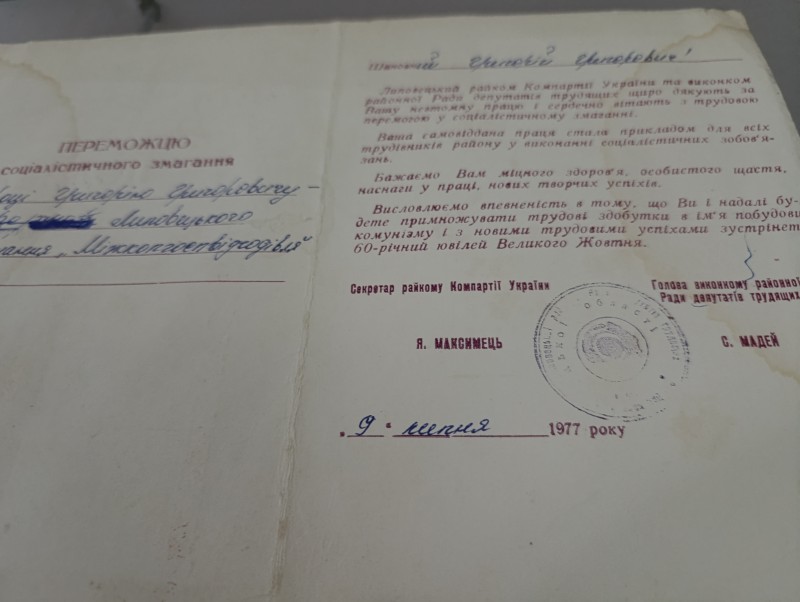 ПЕРЕМОЖЦЮ
соціалістичного змагання
Григорію Григоровичу –
Липовецького
"Міжколгоспвідгодівля"
Шановний Григорій Григорович!
Липовецький райком Компартії України та виконком
районної Ради депутатів трудящих щиро дякують за
Вашу невтомну працю і сердечно вітають з трудовою
перемогою у соціалістичному змаганні.
Ваша самовіддана праця стала прикладом для всіх
трудівників району у виконанні соціалістичних зобов'я-
зань.
Бажаємо Вам міцного здоров'я, особистого щастя,
наснаги у праці, нових творчих успіхів.
Висловлюємо впевненість в тому, що Ви і надалі бу-
дете примножувати трудові здобутки в ім'я побудови
комунізму і з новими трудовими успіхами зустрінет
60-річний ювілей Великого Жовтня.
Секретар райкому Компартії України
Голова виконкому районної
Ради депутатів трудящих
Я. МАКСИМЕЦЬ
С. МАДЕЙ
„9" липня 1977 року